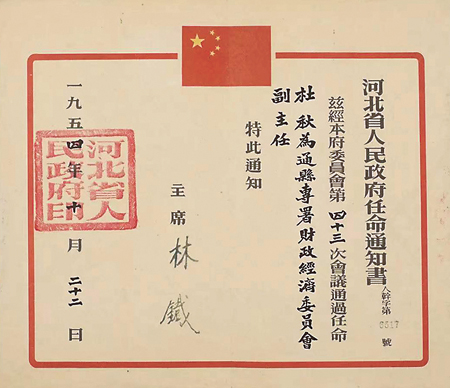 河北省人民政府任命通知書
人幹字第6517號
茲經本府委員會第四十三次會議通過任命
杜秋為通縣專署財政經濟委員會
副主任
特此通知
主席林鐵
一九五四年十月二十二日
河北省人
民政府印